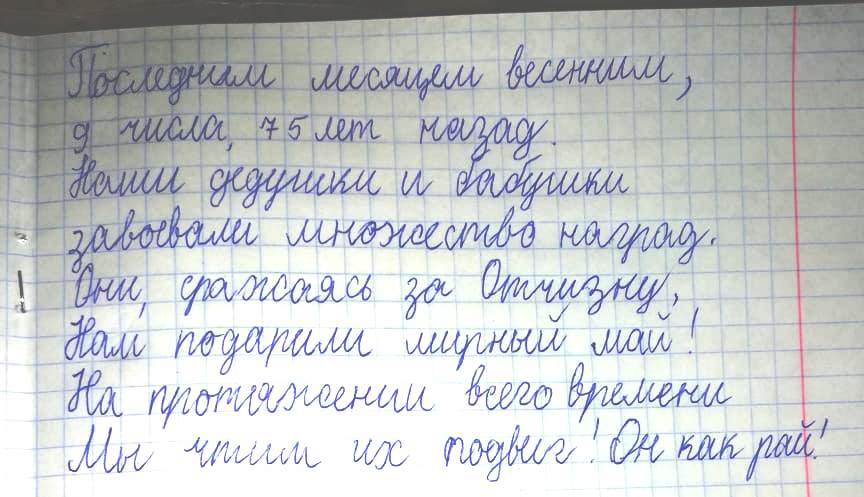 Последним месяцем весенним,
9 числа, 75 лет назад.
Наши дедушки и бабушки
завоевали множество наград.
Они, сражаясь за Отчизну,
Нам подарили мирный май!
На протяжении всего времени
Мы чтим их подвиг! Он как рай!